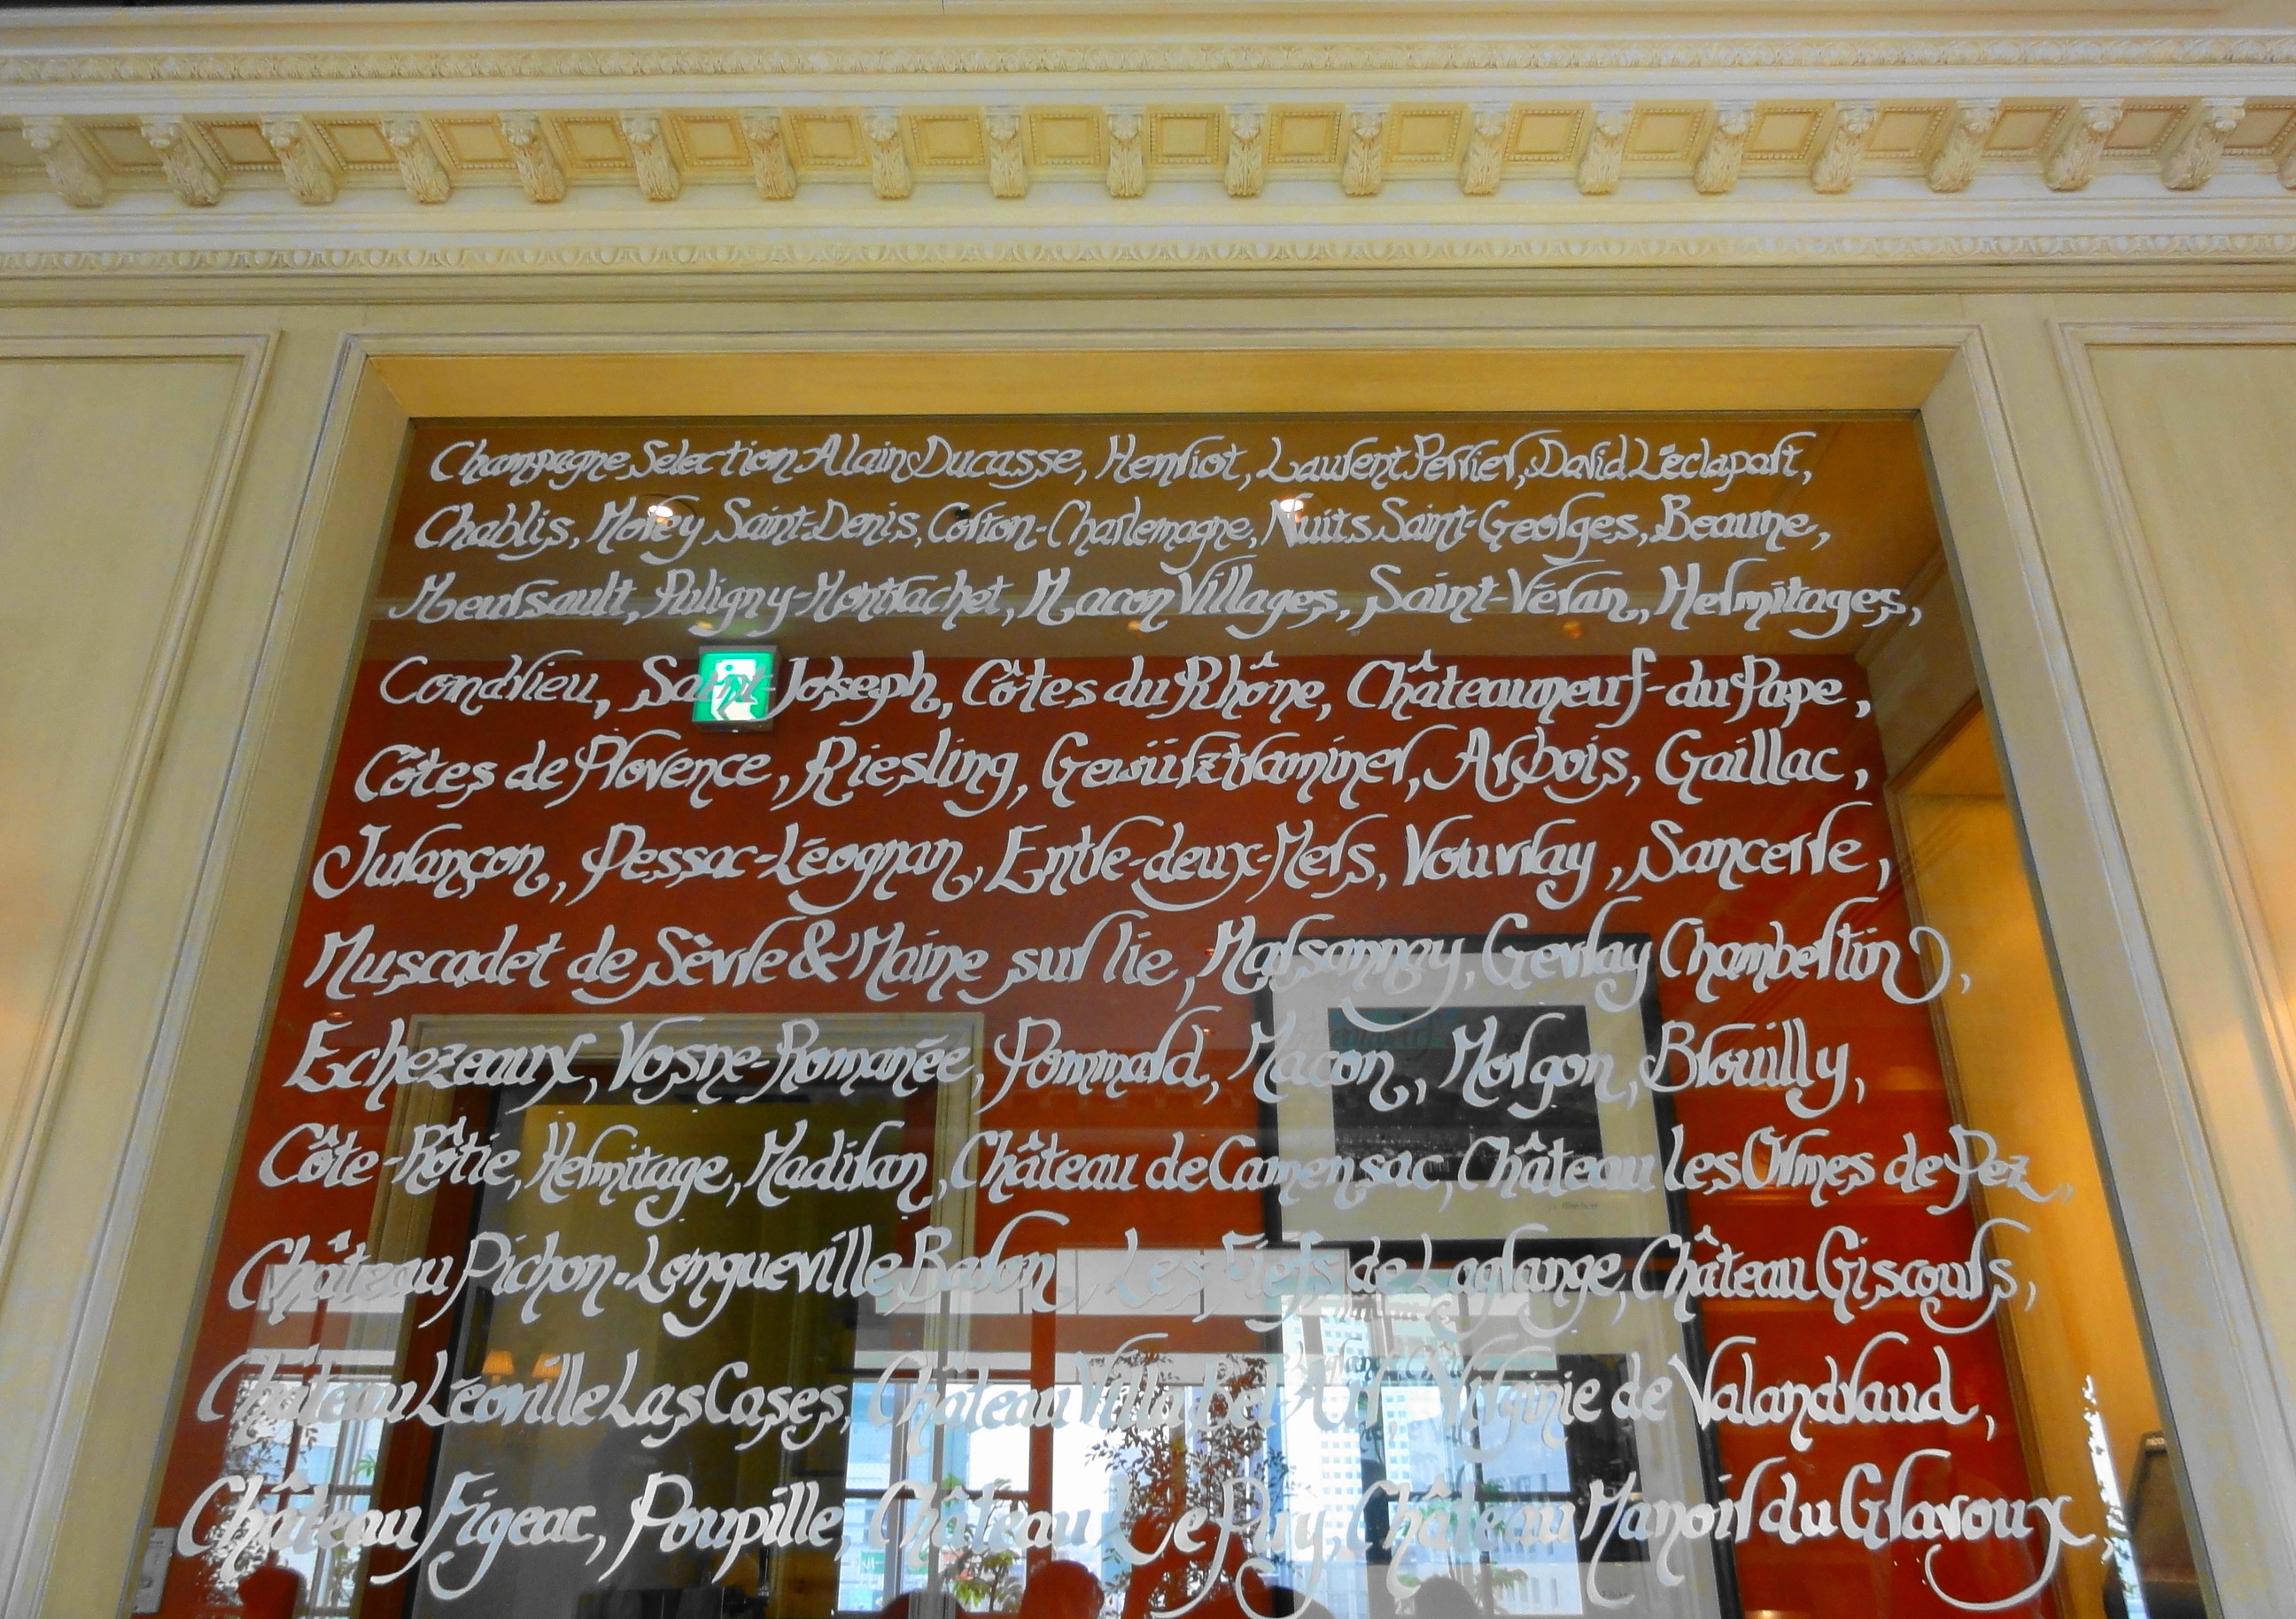 Champagne Selection Alain Ducasse, Henriot, Laurent Perrier, David Léclapart,
Chablis, Morey Saint-Denis, Corton-Charlemagne, Nuits Saint-Georges, Beaune,
Meursault, Puligny-Montrachet, Macon Villages, Saint-Véran, Hermitages,
Condrieu, Saint-Joseph, Côtes du Rhône, Châteauneuf-du Pape,
Côtes de Provence, Riesling, Gewürztraminer, Arbois, Gaillac,
Jurançon, Pessac-Léognan, Entre-deux-Mers, Vouvray, Sancerre,
Muscadet de Sèvre & Maine sur lie, Marsannay, Gevray Chambertin,
Echezeaux, Vosne-Romanée, Pommard, Macon, Morgon, Brouilly,
Côte-Rôtie, Hermitage, Madiran, Château de Camensac, Château les Ormes de Pez,
Château Pichon-Longueville Baron, Les Fiefs de Lagrange, Château Giscours,
Château Léoville Las Cases, Château Villa Bel-Air, Virginie de Valandraud,
Château Figeac, Poupille, Château Le Puy, Château Manoir du Gravoux,